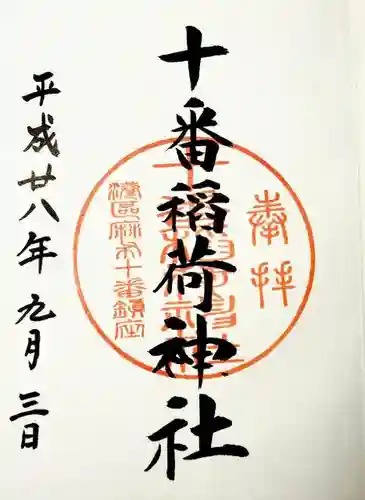 奉拝
十番稲荷神社
港區麻布十番鎮座
平成廿八年九月三日